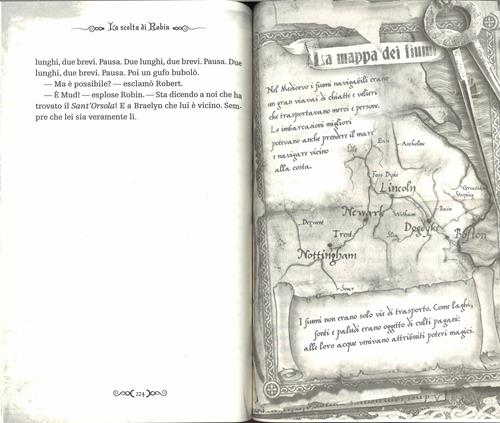 La scelta di Robin
lunghi, due brevi. Pausa. Due lunghi, due brevi. Pausa. Due
lunghi, due brevi. Pausa. Poi un gufo bubolò.
— Ma è possibile? — esclamò Robert.
— È Mud! — esplose Robin. — Sta dicendo a noi che ha
trovato il Sant'Orsola! E a Braelyn che lui è vicino. Sem-
pre che lei sia veramente lì.
224
La mappa dei fiumi
Nel Medioevo i fiumi navigabili erano
un gran viavai di chiatte e velieri
che trasportavano merci e persone.
Le imbarcazioni migliori
potevano anche prendere il mare
e navigare vicino
alla costa.
Eau
Ancholme
Foss Dyke
Lincoln
Greath
Steping
Newark
Witham
Bain
Derwent
Trent
Slea
Dogdyke
Boston
Nottingham
Soar
I fiumi non erano solo vie di trasporto. Come laghi,
fonti e paludi erano oggetto di culti pagani:
alle loro acque venivano attribuiti poteri magici.